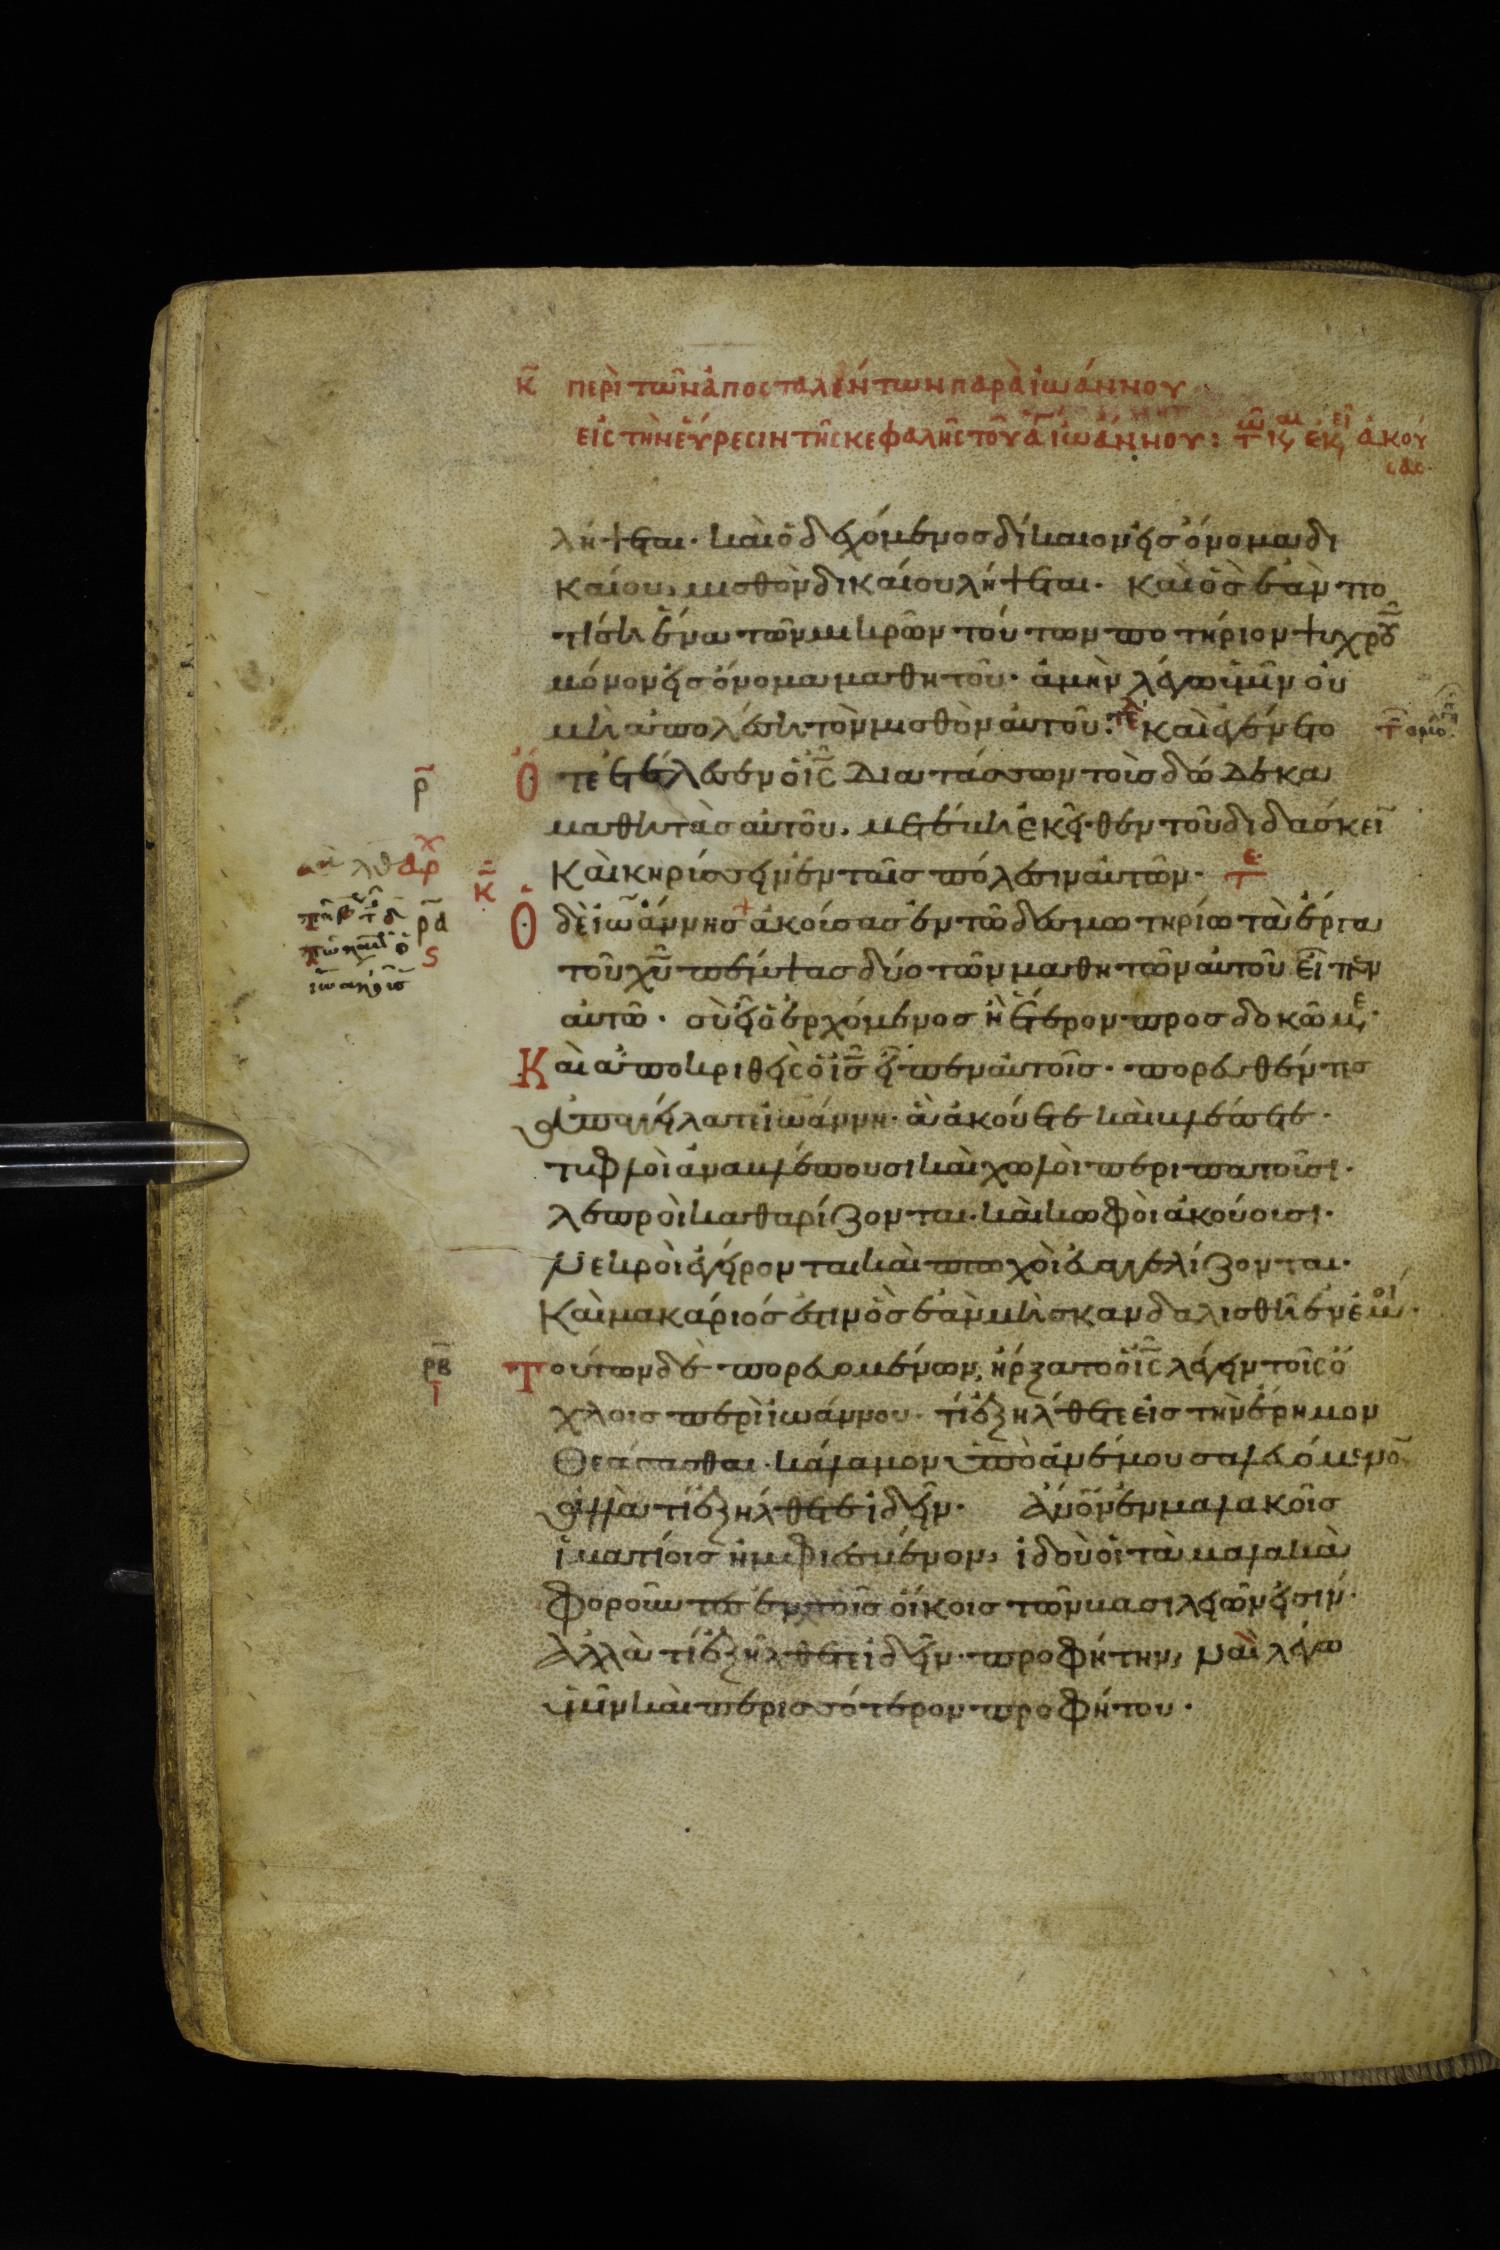 κ̄ περὶ τῶν ἀποσταλέντων παρὰ ἰωάννου
εἰς τὴν εὕρεσιν τῆς κεφαλῆς τοῦ ἁ ἰωάννου: ἀκού
σας
λήψεται· καὶ ὁ δεχόμενος δίκαιον εἰς ὄνομα δι
καίου, μισθὸν δικαίου λήψεται· καὶ ὃς ἐὰν πο
τίσῃ ἕνα τῶν μικρῶν τούτων ποτήριον ψυχροῦ
μόνον εἰς ὄνομα μαθητοῦ· ἀμὴν λέγω ὑμῖν οὐ
μὴ ἀπολέσῃ τὸν μισθὸν αὐτοῦ· τελ καὶ ἐγένετο
ρ̄ ὅτε ἐτέλεσεν ὁ ις̄ διατάσσων τοῖς δώδεκα
μαθηταῖς αὐτοῦ. μετέβη ἐκεῖθεν τοῦ διδάσκειν
καὶ κηρύσσειν ἐν ταῖς πόλεσιν αὐτῶν·
κ̄ ρᾱ ὁ δὲ ἰωάννης ἀκούσας ἐν τῶ δεσμωτηρίω τὰ ἔργα
τοῦ χῡ πέμψας δύο τῶν μαθητῶν αὐτοῦ εἶπεν
αὐτῶ· σὺ εἶ ὁ ἐρχόμενος ἢ ἕτερον προσδοκῶμε·
Καὶ ἀποκριθεὶς ὁ ις̄ εἶπεν αὐτοῖς· πορευθέντες
ἀπαγγείλατε ἰωάννη· ἃ ἀκούετε καὶ βλέπετε·
τυφλοὶ ἀναβλέπουσι καὶ χωλοὶ περιπατοῦσι·
λεπροὶ καθαρίζονται· καὶ κωφοὶ ἀκούουσι·
νεκροὶ ἐγείρονται καὶ πτωχοὶ εὐαγγελίζονται·
Καὶ μακάριός ἐστιν ὃς ἐὰν μὴ σκανδαλισθῆ ἐν ἐμοί·
ρβ̄ Τούτων δὲ πορευομένων, ἤρξατο ὁ ις̄ λέγειν τοῖς ὄ
χλοις περὶ ἰωάννου· τί ἐξήλθετε εἰς τὴν ἔρημον
θεάσασθαι· κάλαμον ὑπὸ ἀνέμου σαλευόμενον
ἀλλὰ τί ἐξήλθετε ἰδεῖν· ἄνον ἐν μαλακοῖς
ἱματίοις ἠμφιεσμένον, ἰδοὺ οἱ τὰ μαλακὰ
φοροῦντες ἐν τοῖς οἴκοις τῶν βασιλειῶν εἰσίν·
Ἀλλὰ τί ἐξήλθετε ἰδεῖν· προφήτην, ναὶ λέγω
ὑμῖν καὶ περισσότερον προφήτου·